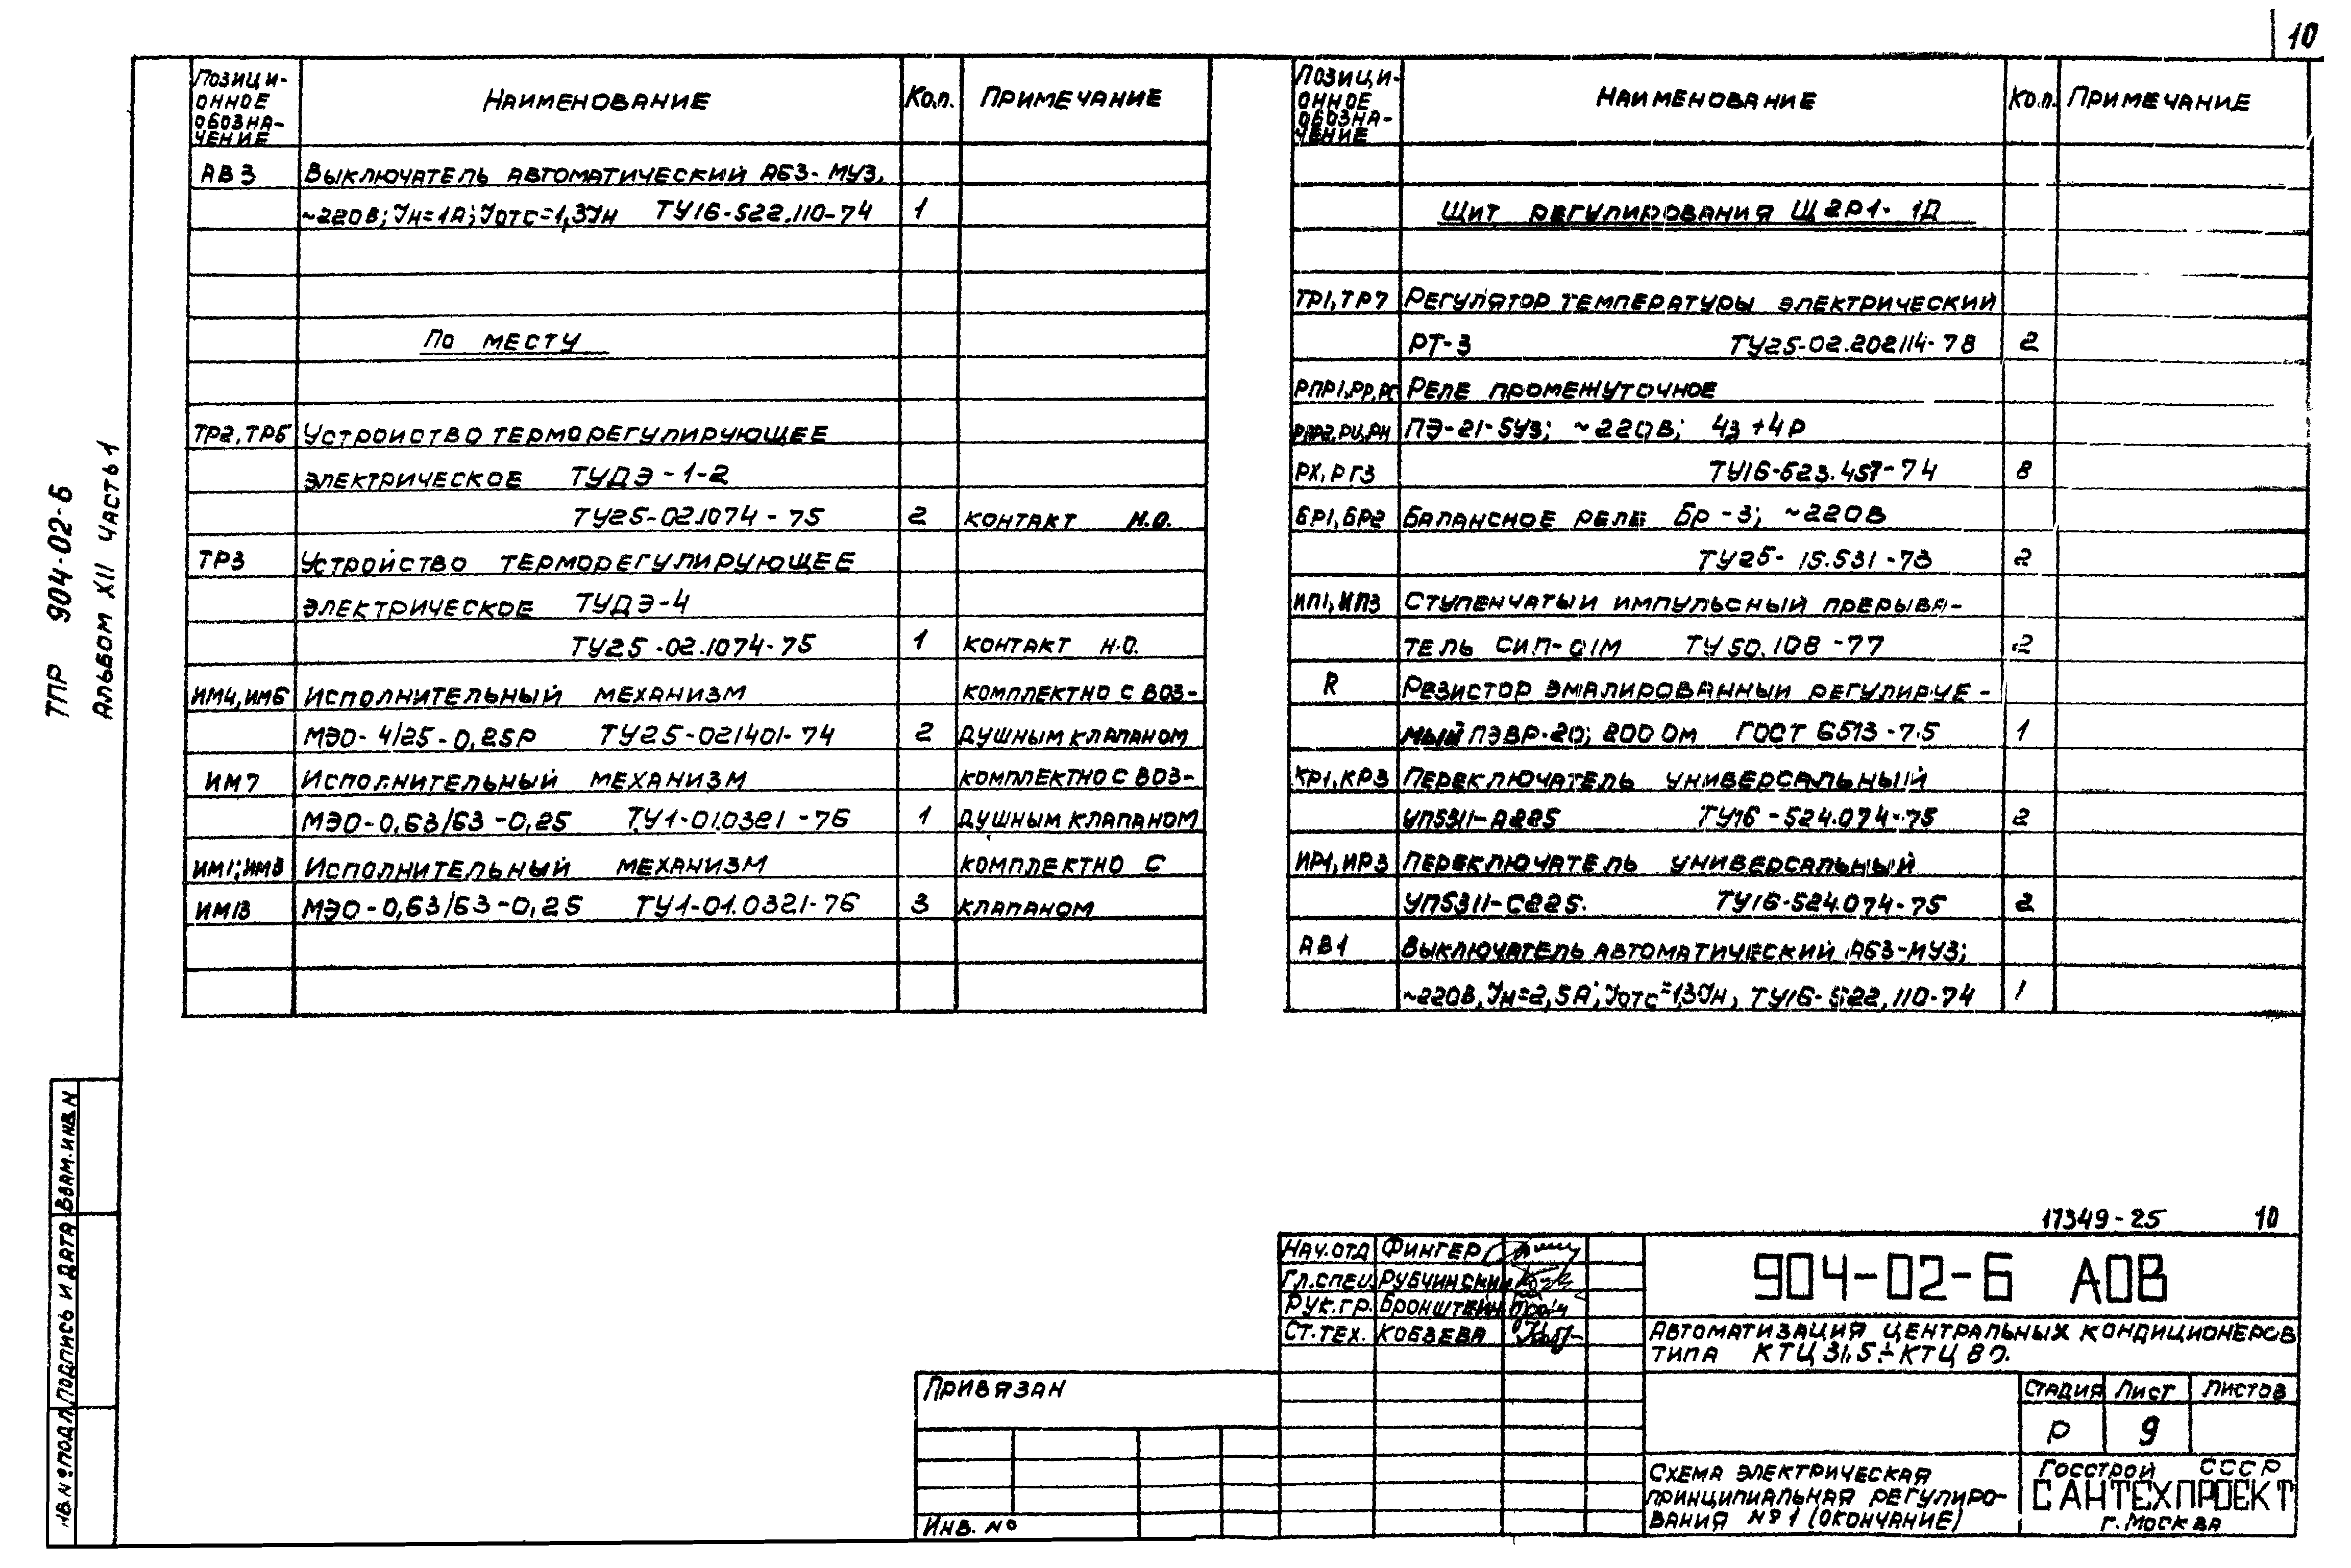 10
ТПР 904-02-Б
Альбом XII часть 1
Позици-
онное
обозна-
чение
Наименование
Кол.
Примечание
АВ3 Выключатель автоматический АБ3-МУ3,
~220В; Iн=1А; Iотс=1,3Iн ТУ16-522.110-74 1
По месту
ТР2, ТР5 Устроиство терморегулирующее
электрическое ТУДЭ-1-2
ТУ25-02.1074-75 2 контакт Н.О.
ТР3 Устройство терморегулирующее
электрическое ТУДЭ-4
ТУ25-02.1074-75 1 контакт Н.О.
ИМ4, ИМ6 Исполнительный механизм комплектно с воз-
МЭО-4/25-0,25Р ТУ25-021401-74 2 душным клапаном
ИМ7 Исполнительный механизм комплектно с воз-
МЭО-0,63/63-0,25 ТУ1-01.0321-76 1 душным клапаном
ИМ1; ИМ8 Исполнительный механизм комплектно с
ИМ13 МЭО-0,63/63-0,25 ТУ1-01.0321-76 3 клапаном
Позици-
онное
обозна-
чение
Наименование
Кол.
Примечание
Щит регулирования Щ2Р1-1Д
ТР1, ТР7 Регулятор температуры электрический
РТ-3 ТУ25-02.202114-78 2
РПР1, РР, РС Реле промежуточное
РПР2, РЦ, РН ПЭ-21-5У3; ~220В; 4з+4р
РХ, РГ3 ТУ16-523.457-74 8
БР1, БР2 Балансное реле Бр-3; ~220В
ТУ25-15.531-73 2
ИП1, ИП3 Ступенчатый импульсный прерыва-
тель СИП-01М ТУ50.108-77 2
R Резистор эмалированный регулируе-
мый ПЭВР-20; 200 Ом ГОСТ 6513-75 1
КР1, КР3 Переключатель универсальный
УП5311-А225 ТУ16-524.074-75 2
ИР1, ИР3 Переключатель универсальный
УП5311-С225. ТУ16-524.074-75 2
АВ1 Выключатель автоматический АБ3-МУ3;
~220В, Iн=2,5А; Iотс=1,3Iн, ТУ16-522.110-74 1
17349-25 10
Нач.отд Фингер
Гл.спец. Рубчинский
Рук.гр. Бронштейн
Ст.тех. Кобзева
904-02-Б АОВ
Автоматизация центральных кондиционеров
типа КТЦ 31,5÷КТЦ 80.
Стадия Лист Листов
Р 9
Схема электрическая
принципиальная регулиро-
вания №1 (окончание)
Госстрой СССР
САНТЕХПРОЕКТ
г. Москва
Привязан
Инв. №
Взам.инв.№
Подпись и дата
Инв.№ подл.